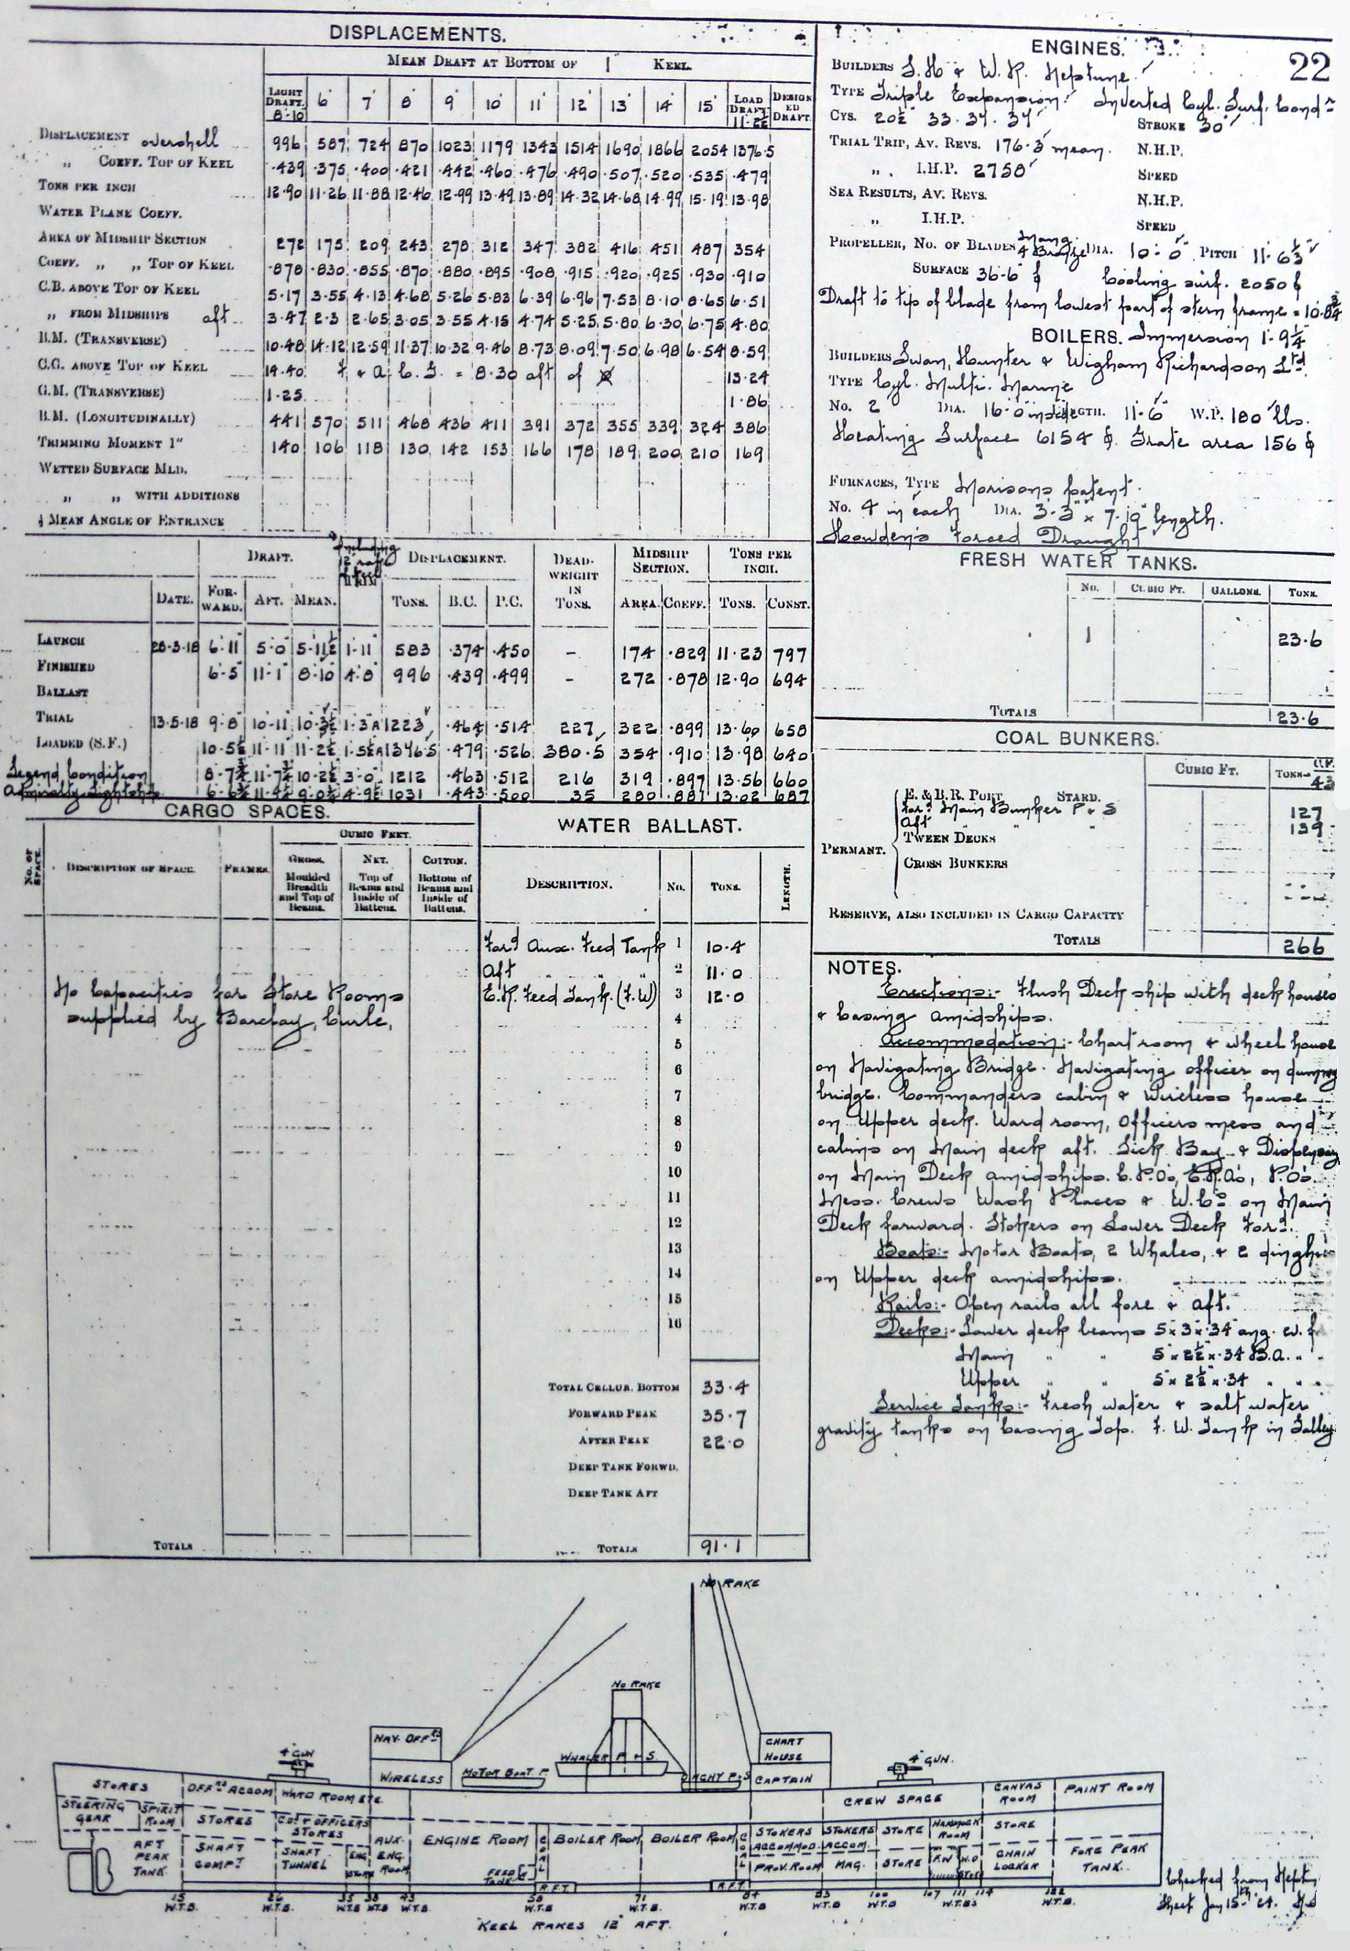 DISPLACEMENTS.
MEAN DRAFT AT BOTTOM OF KEEL.
LIGHT DRAFT. 8·10 6' 7' 8' 9' 10' 11' 12' 13' 14' 15' LOAD DRAFT 11·2½ DESIGNED DRAFT.
DISPLACEMENT overshell 996 587 724 870 1023 1179 1343 1514 1690 1866 2054 1376·5
„ COEFF. TOP OF KEEL ·439 ·375 ·400 ·421 ·442 ·460 ·476 ·490 ·507 ·520 ·535 ·479
TONS PER INCH 12·90 11·26 11·88 12·46 12·99 13·49 13·89 14·32 14·68 14·99 15·19 13·98
WATER PLANE COEFF.
AREA OF MIDSHIP SECTION 272 175 209 243 278 312 347 382 416 451 487 354
COEFF. „ „ TOP OF KEEL ·878 ·830 ·855 ·870 ·880 ·895 ·908 ·915 ·920 ·925 ·930 ·910
C.B. ABOVE TOP OF KEEL 5·17 3·55 4·13 4·68 5·26 5·83 6·39 6·96 7·53 8·10 8·65 6·51
„ FROM MIDSHIPS aft 3·47 2·3 2·65 3·05 3·55 4·15 4·74 5·25 5·80 6·30 6·75 4·80
B.M. (TRANSVERSE) 10·48 14·12 12·59 11·37 10·32 9·46 8·73 8·09 7·50 6·98 6·54 8·59
C.G. ABOVE TOP OF KEEL 14·40 = 8·30 aft of 13·24
G.M. (TRANSVERSE) 1·25 1·86
B.M. (LONGITUDINALLY) 441 570 511 468 436 411 391 372 355 339 324 386
TRIMMING MOMENT 1" 140 106 118 130 142 153 166 178 189 200 210 169
WETTED SURFACE MLD.
„ „ WITH ADDITIONS
½ MEAN ANGLE OF ENTRANCE
DRAFT. DISPLACEMENT. DEAD-WEIGHT IN TONS. MIDSHIP SECTION. TONS PER INCH.
DATE. FORWARD. AFT. MEAN. TONS. B.C. P.C. AREA. COEFF. TONS. CONST.
LAUNCH 28·3·18 6·11 5·0 5·11½ 1·11 583 ·374 ·450 - 174 ·829 11·23 797
FINISHED 6·5 11·1 8·10 4·8 996 ·439 ·499 - 272 ·878 12·90 694
BALLAST
TRIAL 13·5·18 9·8 10·11 10·3½ 1·3A 1223 ·464 ·514 227 322 ·899 13·60 658
LOADED (S.F.) 10·5½ 11·11 11·2½ 1·5½A 1376·5 ·479 ·526 380·5 354 ·910 13·98 640
Legend Condition 8·7¾ 11·7¾ 10·2½ 3·0 1212 ·463 ·512 216 319 ·897 13·56 660
Admiralty Light 6·6¾ 11·4½ 9·0½ 4·9½ 1031 ·443 ·500 35 280 ·881 13·02 687
CARGO SPACES.
No. OF SPACE. DESCRIPTION OF SPACE. FRAMES. CUBIC FEET.
GROSS. Moulded Breadth and Top of Beams. NET. Top of Beams and Inside of Battens. COTTON. Bottom of Beams and Inside of Battens.
No Capacities for Store Rooms
supplied by Barclay, Curle,
TOTALS
WATER BALLAST.
DESCRIPTION. No. TONS. LENGTH.
Ford Aux. Feed Tank 1 10·4
Aft „ „ „ 2 11·0
E.R. Feed Tank. (F.W) 3 12·0
4
5
6
7
8
9
10
11
12
13
14
15
16
TOTAL CELLUR. BOTTOM 33·4
FORWARD PEAK 35·7
AFTER PEAK 22·0
DEEP TANK FORWD.
DEEP TANK AFT
TOTALS 91·1
22
ENGINES.
BUILDERS S.H & W.R. Neptune
TYPE Triple Expansion Inverted Cyl. Surf. Cond
CYS. 20½ 33·37·37 STROKE 30"
TRIAL TRIP, AV. REVS. 176·3 mean. N.H.P.
„ I.H.P. 2758 SPEED
SEA RESULTS, AV. REVS. N.H.P.
„ I.H.P. SPEED
PROPELLER, NO. OF BLADES 4 Mang Bronze DIA. 10·0" PITCH 11·6½
SURFACE 36·6 cooling surf. 2050
Draft to tip of blade from lowest part of stern frame = 10·8¾
BOILERS. Immersion 1·9¼
BUILDERS Swan, Hunter & Wigham Richardson Ltd.
TYPE Cyl. Multi. Marine
No. 2 DIA. 16·0 inside LGTH. 11·6" W.P. 180 lbs.
Heating Surface 6154 Grate area 156
FURNACES, TYPE Morisons patent.
No. 4 in each DIA. 3·3" x 7·10" length.
Howden's Forced Draught
FRESH WATER TANKS.
No. CUBIC FT. GALLONS. TONS.
1 23·6
TOTALS 23·6
COAL BUNKERS.
CUBIC FT. TONS 43
PERMANT. E. & B.R. PORT STARD.
Ford Main Bunker P & S 127
Aft „ „ „ 139
TWEEN DECKS
CROSS BUNKERS
RESERVE, ALSO INCLUDED IN CARGO CAPACITY
TOTALS 266
NOTES.
Erections:- Flush Deck ship with deck houses
& casing amidships.
Accommodation:- Chartroom & wheel house
on Navigating Bridge. Navigating officer on dummy
bridge. Commanders cabin & wireless house
on Upper deck. Ward room, Officers mess and
cabins on Main deck aft. Sick Bay & Dispensary
on Main Deck amidships. C.P.O's, E.R.A's, P.O's.
Mess. Crews Wash Places & W.Cs on Main
Deck forward. Stokers on Lower Deck Ford.
Boats:- Motor Boats, 2 Whales, & 2 dinghies
on Upper deck amidships.
Rails:- Open rails all fore & aft.
Decks:- Lower deck beams 5 x 3 x ·34 ang.
Main „ „ 5 x 2½ x ·34 B.A. „ „
Upper „ „ 5 x 2½ x ·34 „ „
Service Tanks:- Fresh water & salt water
gravity tanks on casing Top. F.W. Tank in Galley.
NO RAKE
NO RAKE
NAV. OFFRS
WIRELESS
MOTOR BOAT P
WHALER P & S
DINGHY P&S
CHART HOUSE
CAPTAIN
4" GUN
4" GUN.
STORES OFFRS ACCOM WARD ROOM ETC. CREW SPACE CANVAS ROOM PAINT ROOM
STEERING GEAR SPIRIT ROOM STORES CO. & OFFICERS STORES AUX. ENG. ROOM ENGINE ROOM COAL BOILER ROOM BOILER ROOM COAL STOKERS ACCOMMOD. STOKERS ACCOM. STORE HAMMOCK ROOM STORE
AFT PEAK TANK SHAFT COMPT. SHAFT TUNNEL ENG STORE FEED TANK R.F.T. R.F.T. PROV. ROOM MAG. STORE F.W W.O STORE CHAIN LOCKER FORE PEAK TANK
15 26 35 38 43 58 71 84 93 100 107 111 114 122
W.T.B. W.T.B. W.T.B W.T.B W.T.B. W.T.B. W.T.B. W.T.B W.T.B W.T.B W.T.B's W.T.B.
KEEL RAKES 12" AFT.
Checked from Neptune
Sheet Jan 15th 24.